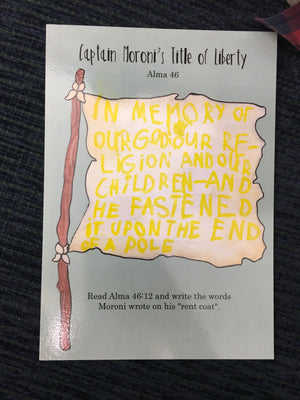 Captain Moroni's Title of Liberty
Alma 46
IN MEMORY OF
OUR GOD, OUR RE-
LIGION AND OUR
CHILDREN-AND
HE FASTENED
IT UPON THE END
OF A POLE
Read Alma 46:12 and write the words
Moroni wrote on his "rent coat".